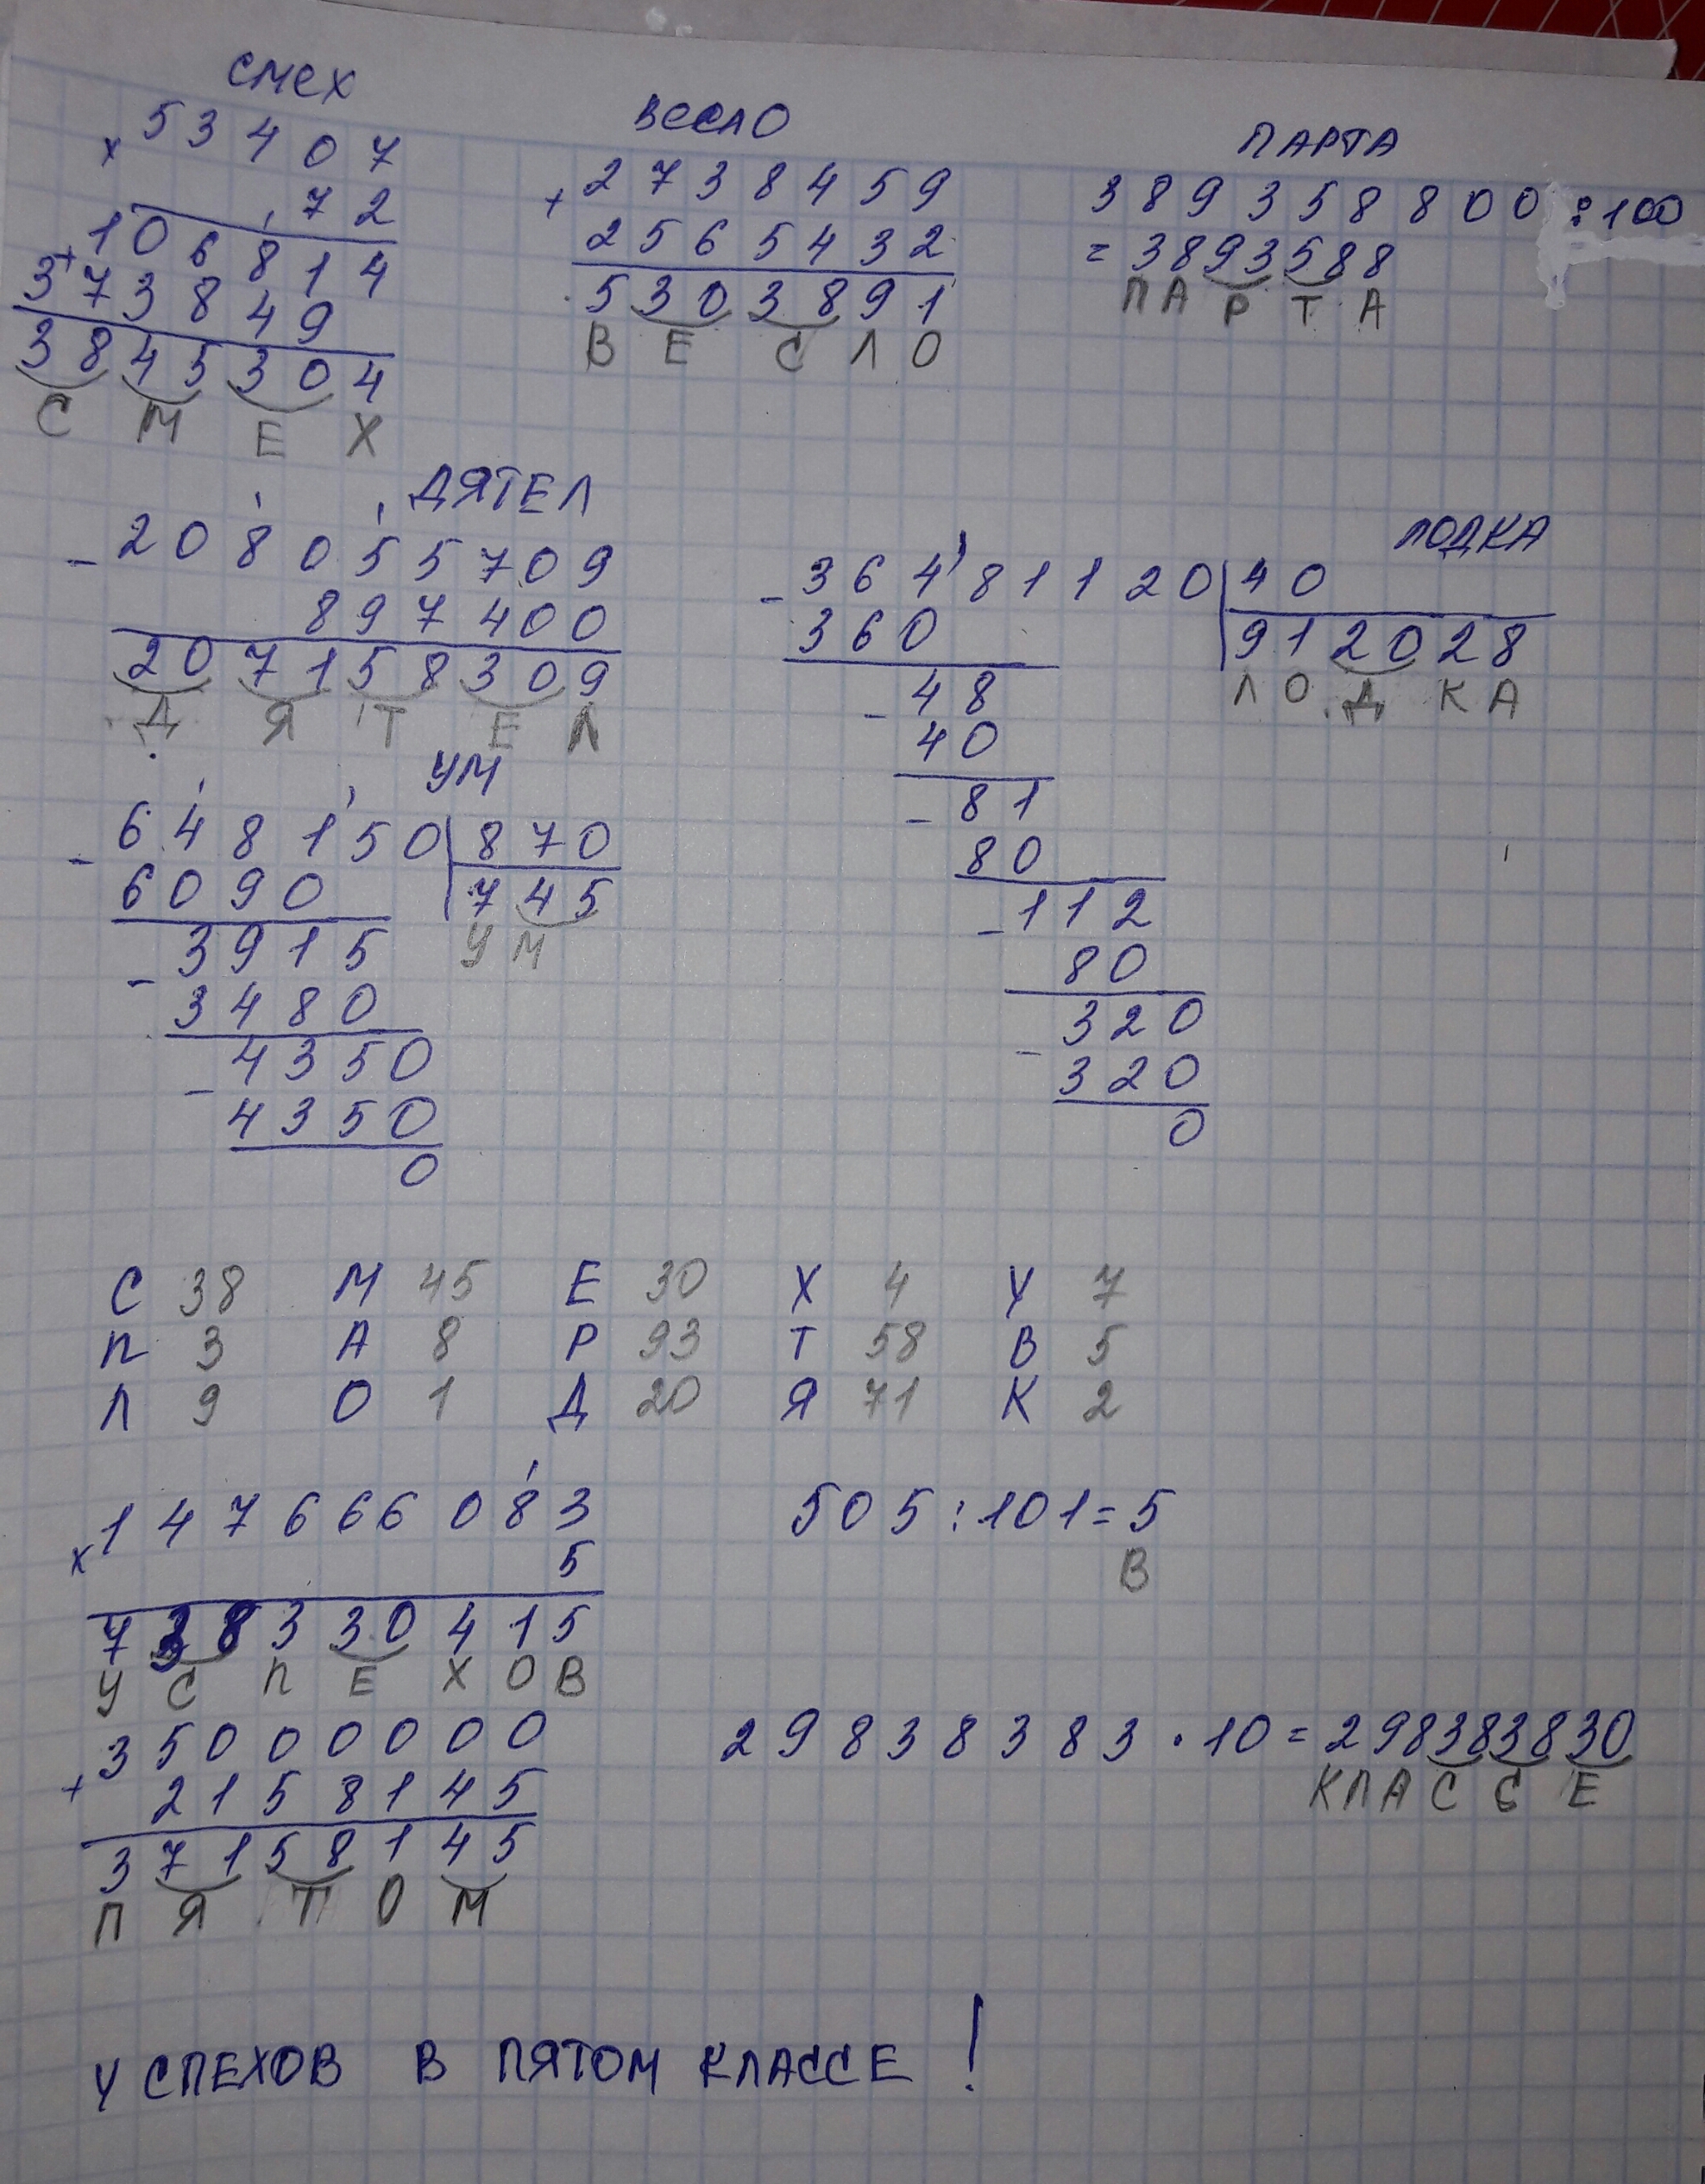 СМЕХ
× 53407
72
+ 106814
373849
3845304
С М Е Х
ВЕСЛО
+ 2738459
2565432
5303891
В Е С Л О
ПАРТА
389358800 : 100
= 3893588
П А Р Т А
ДЯТЕЛ
- 208055709
897400
207158309
Д Я Т Е Л
ЛОДКА
- 36481120 | 40
360 | 912028
Л О Д К А
- 48
40
- 81
80
- 112
80
- 320
320
0
УМ
- 648150 | 870
6090 | 745
У М
- 3915
3480
- 4350
4350
0
С 38 М 45 Е 30 Х 4 У 7
П 3 А 8 Р 93 Т 58 В 5
Л 9 О 1 Д 20 Я 71 К 2
× 147666083
5
738330415
У С П Е Х О В
505 : 101 = 5
В
+ 35000000
2158145
37158145
П Я Т О М
29838383 · 10 = 298383830
К Л А С С Е
УСПЕХОВ В ПЯТОМ КЛАССЕ !